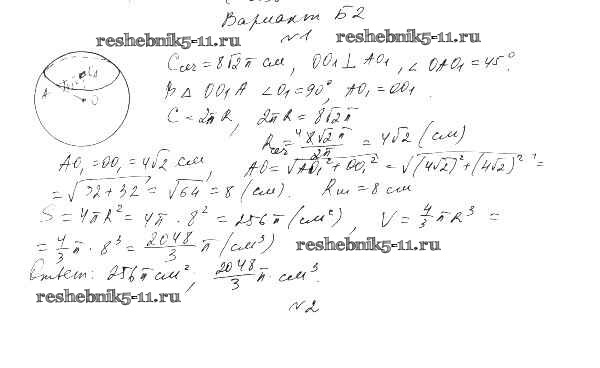 Вариант Б2
reshebnik5-11.ru №1 reshebnik5-11.ru
A O₁ O
Cсеч = 8√2π см, OO₁ ⊥ AO₁, ∠OAO₁ = 45°.
В △ OO₁A ∠O₁ = 90°, AO₁ = OO₁.
C = 2πR, 2πR = 8√2π
Rсеч = 8√2π/2π = 4√2 (см)
AO₁ = OO₁ = 4√2 см, AO = √(AO₁² + OO₁²) = √((4√2)² + (4√2)²) =
= √(32 + 32) = √64 = 8 (см). Rш = 8 см
S = 4πR² = 4π · 8² = 256π (см²), V = 4/3 πR³ =
= 4/3 π · 8³ = 2048/3 π (см³) reshebnik5-11.ru
Ответ: 256π см², 2048/3 π см³.
reshebnik5-11.ru
№2